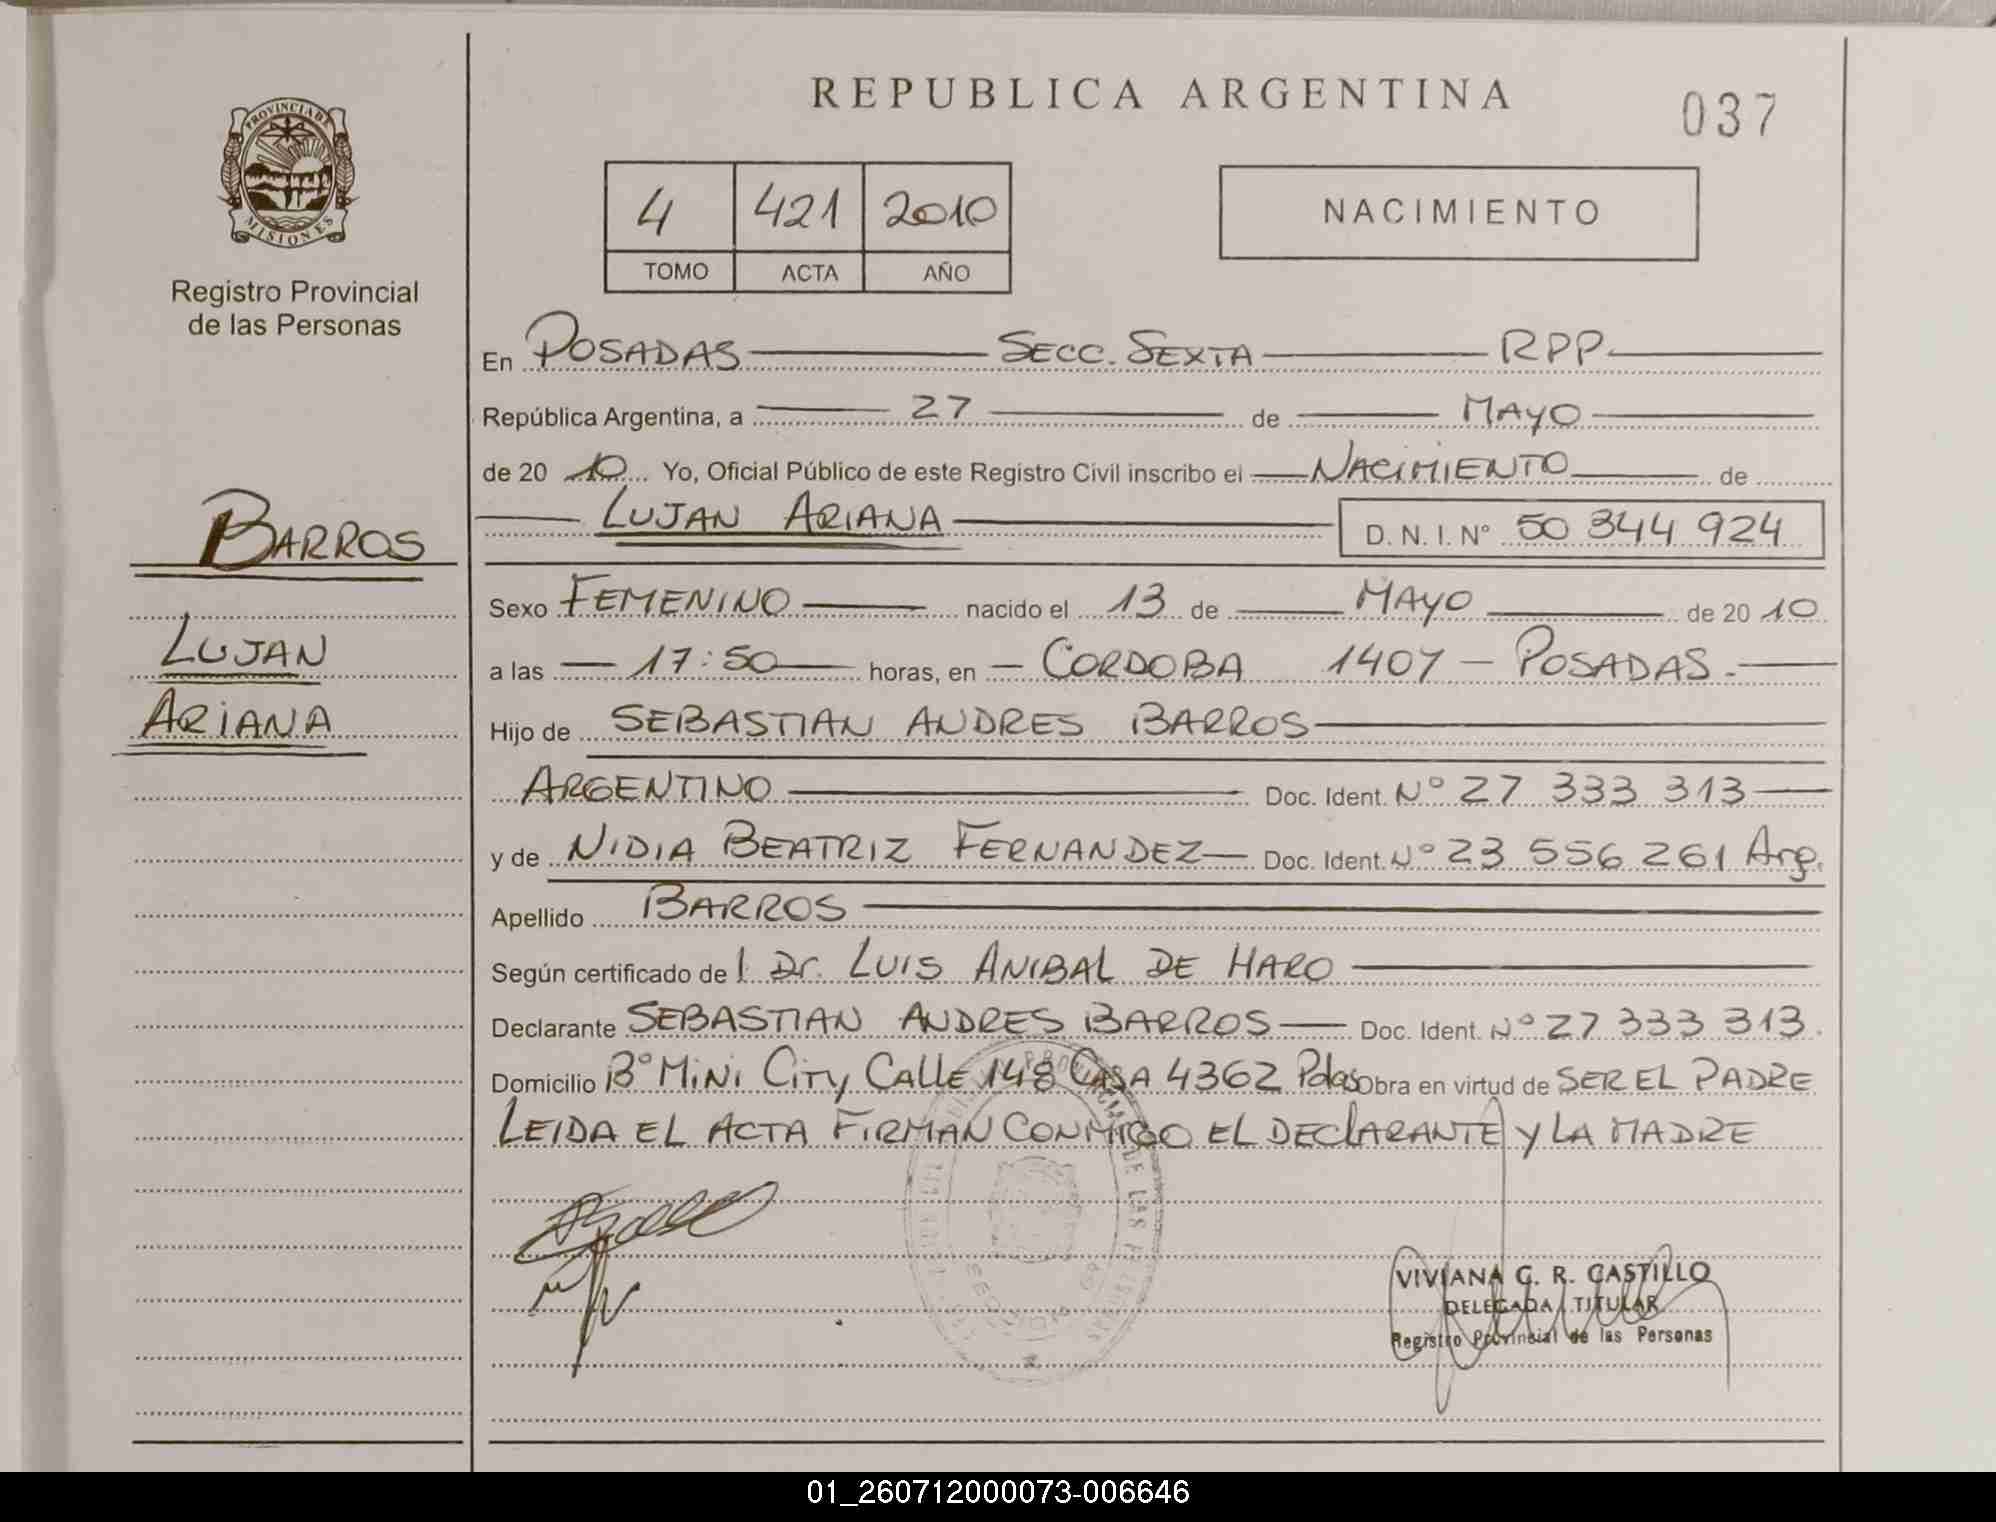 REPUBLICA ARGENTINA
037
PROVINCIA DE
MISIONES
Registro Provincial
de las Personas
4 421 2010
TOMO ACTA AÑO
NACIMIENTO
En POSADAS SECC. SEXTA RPP.
República Argentina, a 27 de MAYO
de 20 10 Yo, Oficial Público de este Registro Civil inscribo el NACIMIENTO de
LUJAN ARIANA D. N. I. N° 50 344 924
BARROS
LUJAN
ARIANA
Sexo FEMENINO nacido el 13 de MAYO de 20 10
a las 17:50 horas, en CORDOBA 1407 - POSADAS.
Hijo de SEBASTIAN ANDRES BARROS
ARGENTINO Doc. Ident. N° 27 333 313
y de NIDIA BEATRIZ FERNANDEZ Doc. Ident. N° 23 556 261 Arg.
Apellido BARROS
Según certificado de l Dr. LUIS ANIBAL DE HARO
Declarante SEBASTIAN ANDRES BARROS Doc. Ident. N° 27 333 313.
Domicilio B° MINI CITY CALLE 148 CASA 4362 Pdas Obra en virtud de SER EL PADRE
LEIDA EL ACTA FIRMAN CONMIGO EL DECLARANTE Y LA MADRE
VIVIANA G. R. CASTILLO
DELEGADA TITULAR
Registro Provincial de las Personas
01_260712000073-006646